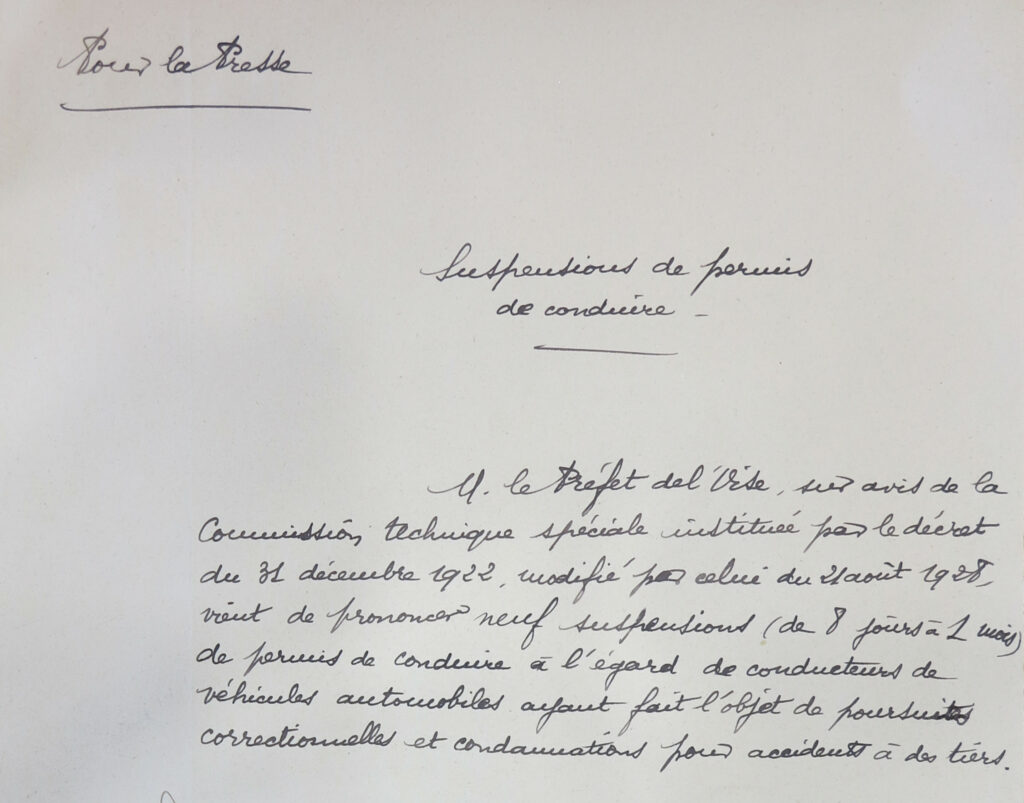 Pour la Presse
Suspensions de permis
de conduire -
M. le Préfet de l'Oise, sur avis de la
Commission technique spéciale instituée par le décret
du 31 décembre 1922, modifié par celui du 21 août 1928,
vient de prononcer neuf suspensions (de 8 jours à 1 mois)
de permis de conduire à l'égard de conducteurs de
véhicules automobiles ayant fait l'objet de poursuites
correctionnelles et condamnations pour accidents à des tiers.